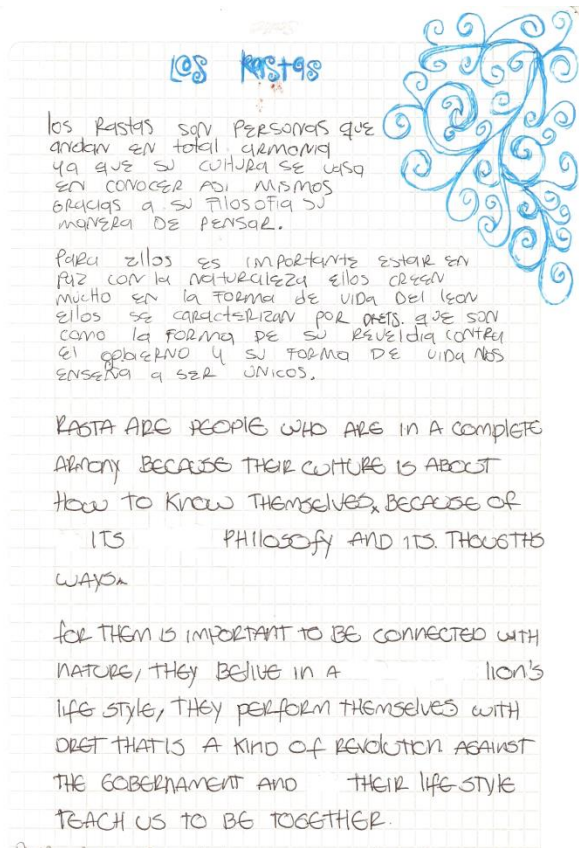 Los Rastas
los Rastas son PERSONAS que
andan en total armonia
ya que su cultura se vasa
en conocer asi mismos
Gracias a su Filosofia su
manera de pensar.
Para ellos es importante estar en
paz con la naturaleza ellos creen
mucho en la forma de vida del leon
ellos se caracterizan por drets. que son
como la forma de su reveldia contra
el gobierno y su forma de vida nos
enseña a ser unicos.
RASTA ARE PEOPLE WHO ARE IN A COMPLETE
ARMONY BECAUSE THEIR CULTURE IS ABOUT
HOW TO KNOW THEMSELVES, BECAUSE OF
ITS PHILOSOFY AND ITS. THOUGTHS
WAYS.
FOR THEM IS IMPORTANT TO BE CONNECTED WITH
NATURE, THEY BELIVE IN A lION'S
LIFE STYLE, THEY PERFORM THEMSELVES WITH
DRET THAT IS A KIND OF REVOLUTION AGAINST
THE GOBERNAMENT AND THEIR LIFE STYLE
TEACH US TO BE TOGETHER.